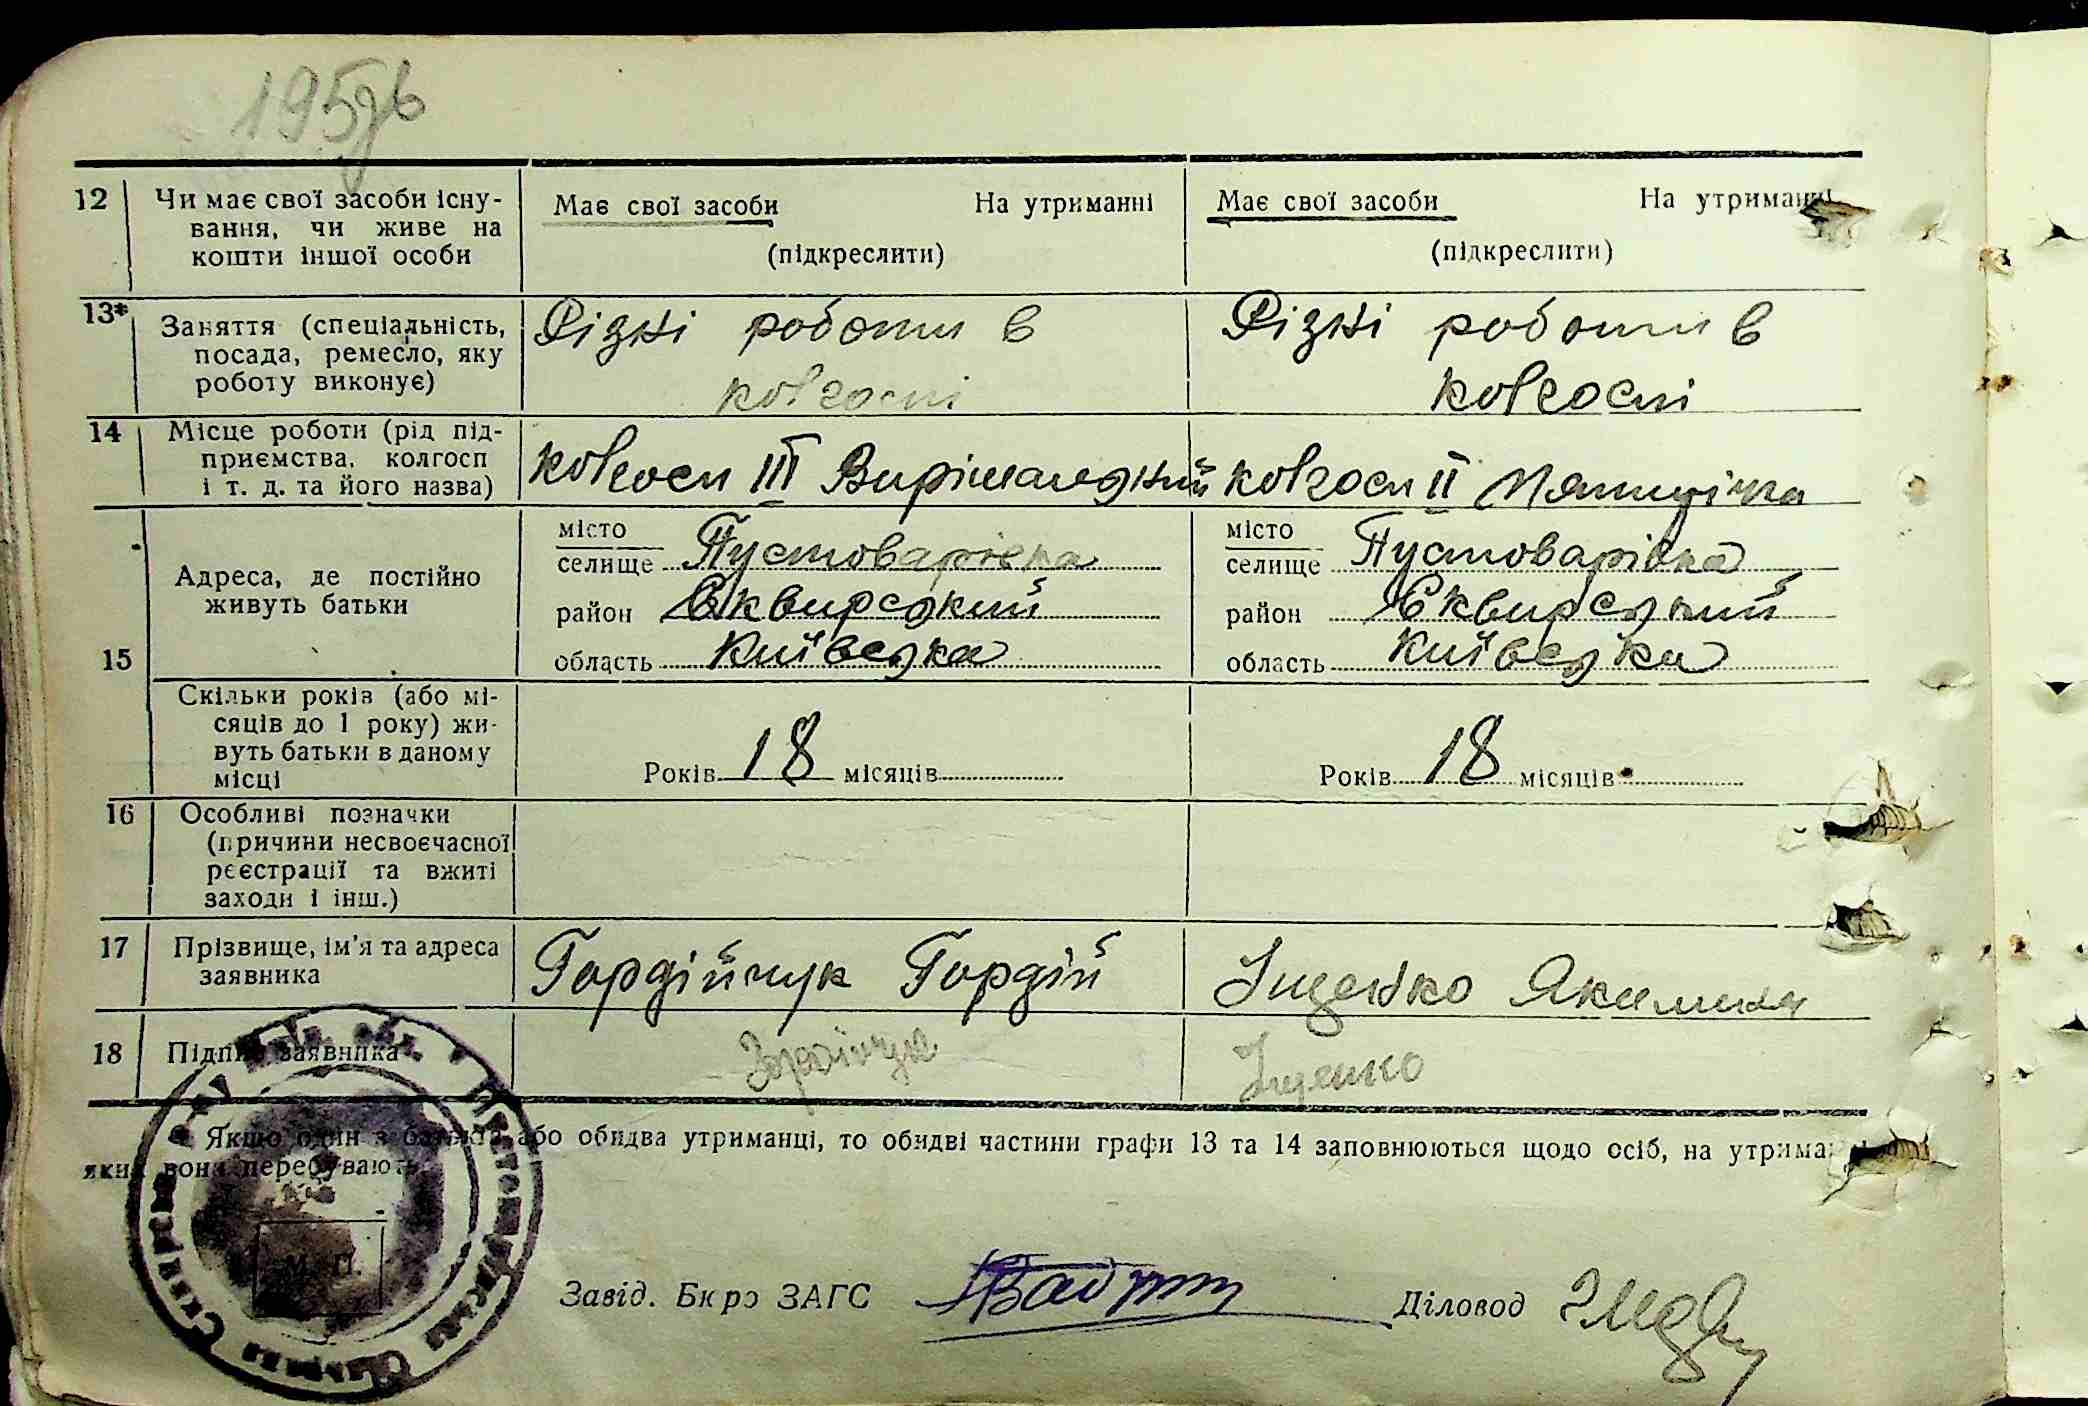 195зв
12 Чи має свої засоби існу- Має свої засоби На утриманні Має свої засоби На утриманні
вання, чи живе на
кошти іншої особи (підкреслити) (підкреслити)
13* Заняття (спеціальність, Різні роботи в Різні роботи в
посада, ремесло, яку
роботу виконує) колгоспі колгоспі
14 Місце роботи (рід під-
приємства, колгосп колгосп III Вирішальний колгосп II П'ятирічка
і т. д. та його назва)
15 Адреса, де постійно
живуть батьки
місто місто
селище Пустоварівка селище Пустоварівка
район Сквирський район Сквирський
область Київська область Київська
Скільки років (або мі-
сяців до 1 року) жи-
вуть батьки в даному
місці Років 18 місяців Років 18 місяців
16 Особливі позначки
(причини несвоєчасної
реєстрації та вжиті
заходи і інш.)
17 Прізвище, ім'я та адреса Гордійчук Гордій Іщенко Якилина
заявника
18 Підпис заявника Іщенко
Якщо один з батьків або обидва утриманці, то обидві частини графи 13 та 14 заповнюються щодо осіб, на утриманні
яких вони перебувають.
М. П.
Завід. Бюро ЗАГС Діловод